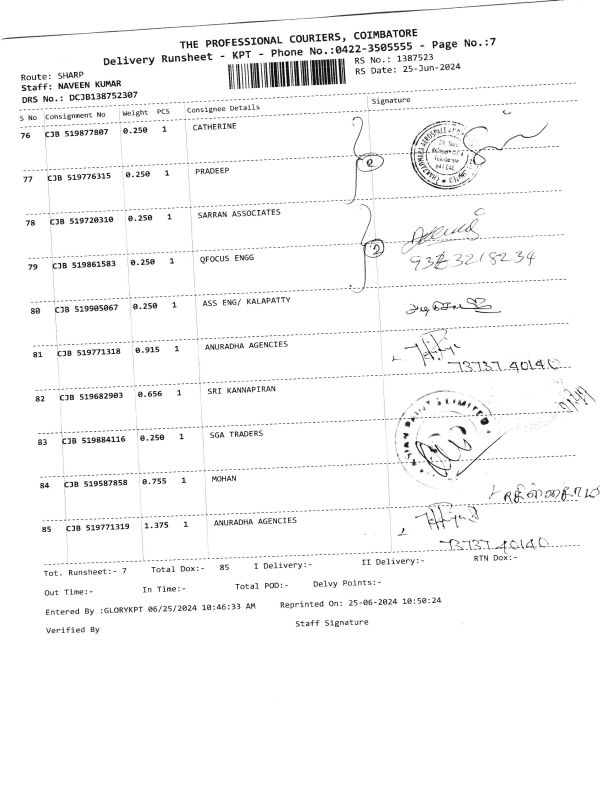 THE PROFESSIONAL COURIERS, COIMBATORE
Delivery Runsheet - KPT - Phone No.:0422-3505555 - Page No.:7
Route: SHARP
RS No.: 1387523
Staff: NAVEEN KUMAR
RS Date: 25-Jun-2024
DRS No.: DCJB138752307
S No Consignment No Weight PCS Consignee Details Signature
76 CJB 519877807 0.250 1 CATHERINE
77 CJB 519776315 0.250 1 PRADEEP
2
78 CJB 519720310 0.250 1 SARRAN ASSOCIATES
2
79 CJB 519861583 0.250 1 QFOCUS ENGG
80 CJB 519905067 0.250 1 ASS ENG/ KALAPATTY
81 CJB 519771318 0.915 1 ANURADHA AGENCIES
73737 40140
82 CJB 519682903 0.656 1 SRI KANNAPIRAN
83 CJB 519884116 0.250 1 SGA TRADERS
84 CJB 519587858 0.755 1 MOHAN
85 CJB 519771319 1.375 1 ANURADHA AGENCIES
73737 40140
Tot. Runsheet:- 7 Total Dox:- 85 I Delivery:- II Delivery:- RTN Dox:-
Out Time:- In Time:- Total POD:- Delvy Points:-
Entered By :GLORYKPT 06/25/2024 10:46:33 AM Reprinted On: 25-06-2024 10:50:24
Verified By Staff Signature